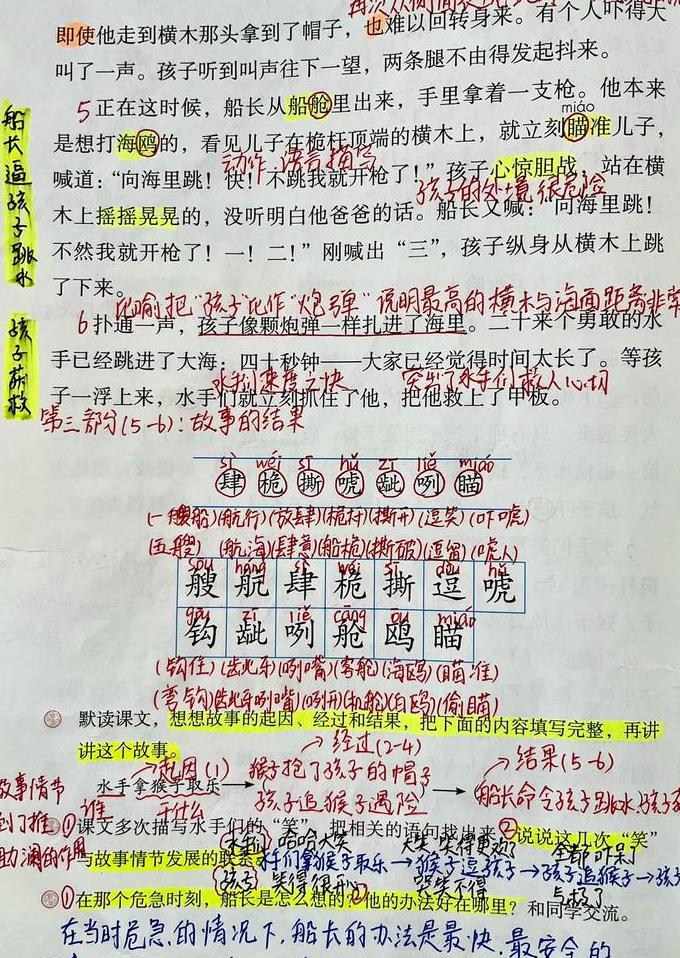 即使他走到横木那头拿到了帽子，也难以回转身来。有个人吓得大
叫了一声。孩子听到叫声往下一望，两条腿不由得发起抖来。
5 正在这时候，船长从船舱里出来，手里拿着一支枪。他本来
miáo
是想打海鸥的，看见儿子在桅杆顶端的横木上，就立刻瞄准儿子，
动作、语言描写
喊道：“向海里跳！快！不跳我就开枪了！”孩子心惊胆战，站在横
孩子的处境很危险
木上摇摇晃晃的，没听明白他爸爸的话。船长又喊：“向海里跳！
不然我就开枪了！一！二！”刚喊出“三”，孩子纵身从横木上跳
了下来。
船长逼孩子跳水
比喻把“孩子”比作“炮弹”说明最高的横木与海面距离非常
6 扑通一声，孩子像颗炮弹一样扎进了海里。二十来个勇敢的水
手已经跳进了大海：四十秒钟——大家已经觉得时间太长了。等孩
水手们速度之快 突出了水手们救人心切
子一浮上来，水手们就立刻抓住了他，把他救上了甲板。
孩子获救
第三部分(5-6)：故事的结果
sì wéi sī hǔ zī liě miáo
肆 桅 撕 唬 龇 咧 瞄
(一艘船)(航行)(放肆)(桅杆)(撕开)(逗笑)(吓唬)
(五艘) (航海)(肆意)(船桅)(撕破)(逗留)(唬人)
sōu háng sì wéi sī dòu hǔ
艘 航 肆 桅 撕 逗 唬
gōu zī liě cāng ōu miáo
钩 龇 咧 舱 鸥 瞄
(钩住)(龇牙)(咧嘴)(客舱)(海鸥)(瞄准)
(弯钩)(龇牙咧嘴)(咧开)(机舱)(白鸥)(偷瞄)
默读课文，想想故事的起因、经过和结果，把下面的内容填写完整，再讲
讲这个故事。
起因(1) 经过(2-4) 结果(5-6)
水手拿猴子取乐→(猴子抱了孩子的帽子
孩子追猴子遇险)→(船长命令孩子跳水，孩子
谁 干什么
故事情节
助澜的作用
①课文多次描写水手们的“笑”，把相关的语句找出来，②说说这几次“笑”
与故事情节发展的联系。
水手们 哈哈大笑 大笑 笑得更欢
水手们拿猴子取乐→猴子逗孩子→孩子追猴子→孩子
孩子 笑得很开心 哭笑不得 气极了
①在那个危急时刻，船长是怎么想的？②他的办法好在哪里？和同学交流。
在当时危急的情况下，船长的办法是最快、最安全的